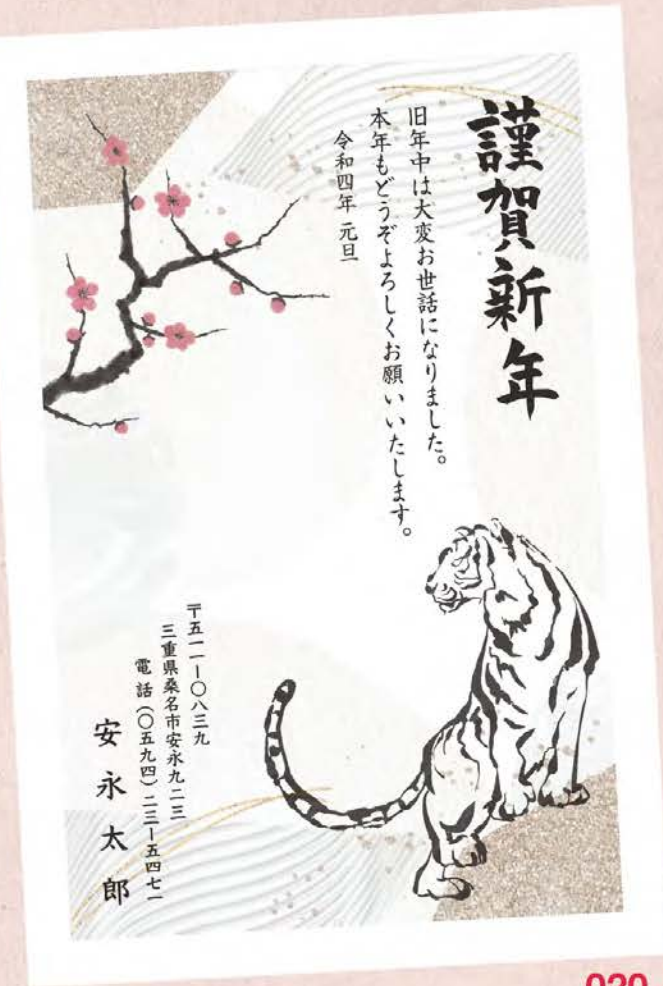 謹賀新年
旧年中は大変お世話になりました。
本年もどうぞよろしくお願いいたします。
令和四年 元旦
〒五一一ー〇八三九
三重県桑名市安永九二三
電話(〇五九四)二三ー五四七一
安永太郎